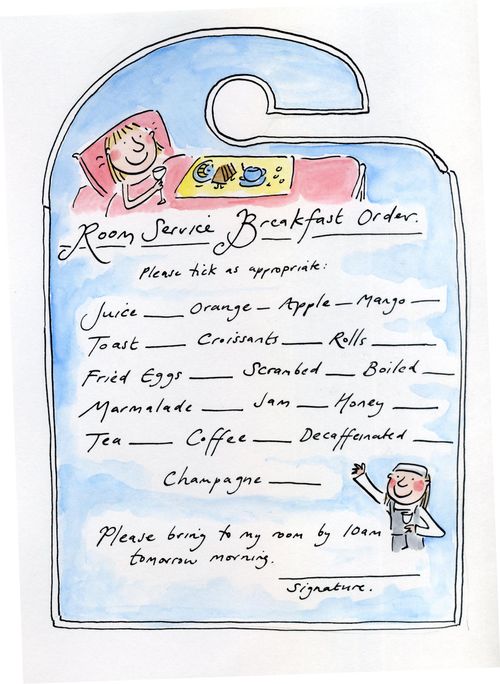 Room Service Breakfast Order.
Please tick as appropriate:
Juice ___ Orange ___ Apple ___ Mango ___
Toast ___ Croissants ___ Rolls ___
Fried Eggs ___ Scrambed ___ Boiled ___
Marmalade ___ Jam ___ Honey ___
Tea ___ Coffee ___ Decaffeinated ___
Champagne ___
Please bring to my room by 10am
tomorrow morning.
Signature.